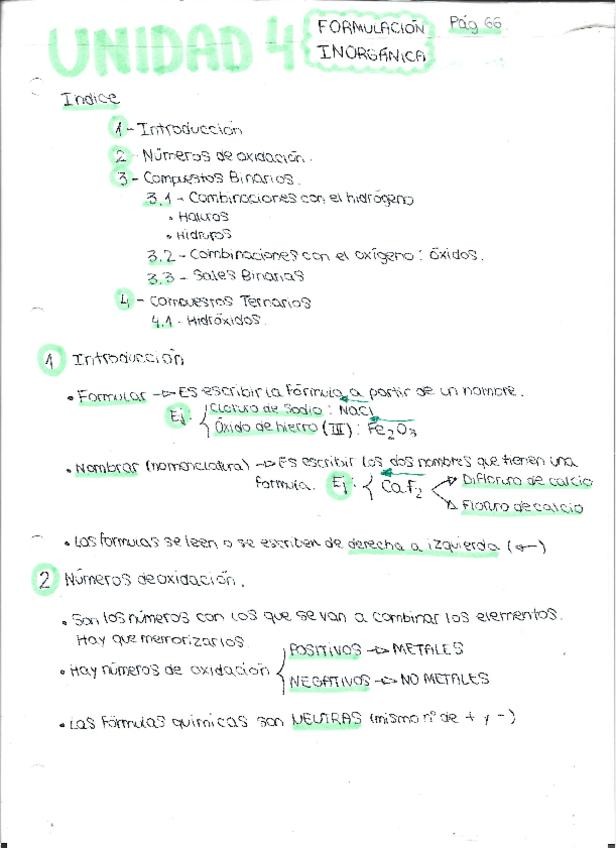 UNIDAD 4 FORMULACIÓN INORGÁNICA Pág 66
Indice
1- Introducción
2 Números de oxidación.
3- Compuestos Binarios.
3.1 - Combinaciones con el hidrógeno
• Haluros
• Hidruros
3.2 - Combinaciones con el oxígeno: óxidos.
3.3 - Sales Binarias
4 - Compuestos Ternarios
4.1 - Hidróxidos.
1 Introducción
• Formular → Es escribir la fórmula a partir de un nombre.
Ej: { Cloruro de Sodio : NaCl
Óxido de hierro (III) : Fe₂O₃
• Nombrar (nomenclatura) → Es escribir los dos nombres que tienen una
formula. Ej: { CaF₂ → Difloruro de calcio
→ Floruro de calcio
• Las formulas se leen o se escriben de derecha a izquierda (←)
2 Números de oxidación.
• Son los números con los que se van a combinar los elementos.
Hay que memorizarlos
• Hay números de oxidación { POSITIVOS → METALES
NEGATIVOS → NO METALES
• Las fórmulas químicas son NEUTRAS (mismo nº de + y -)